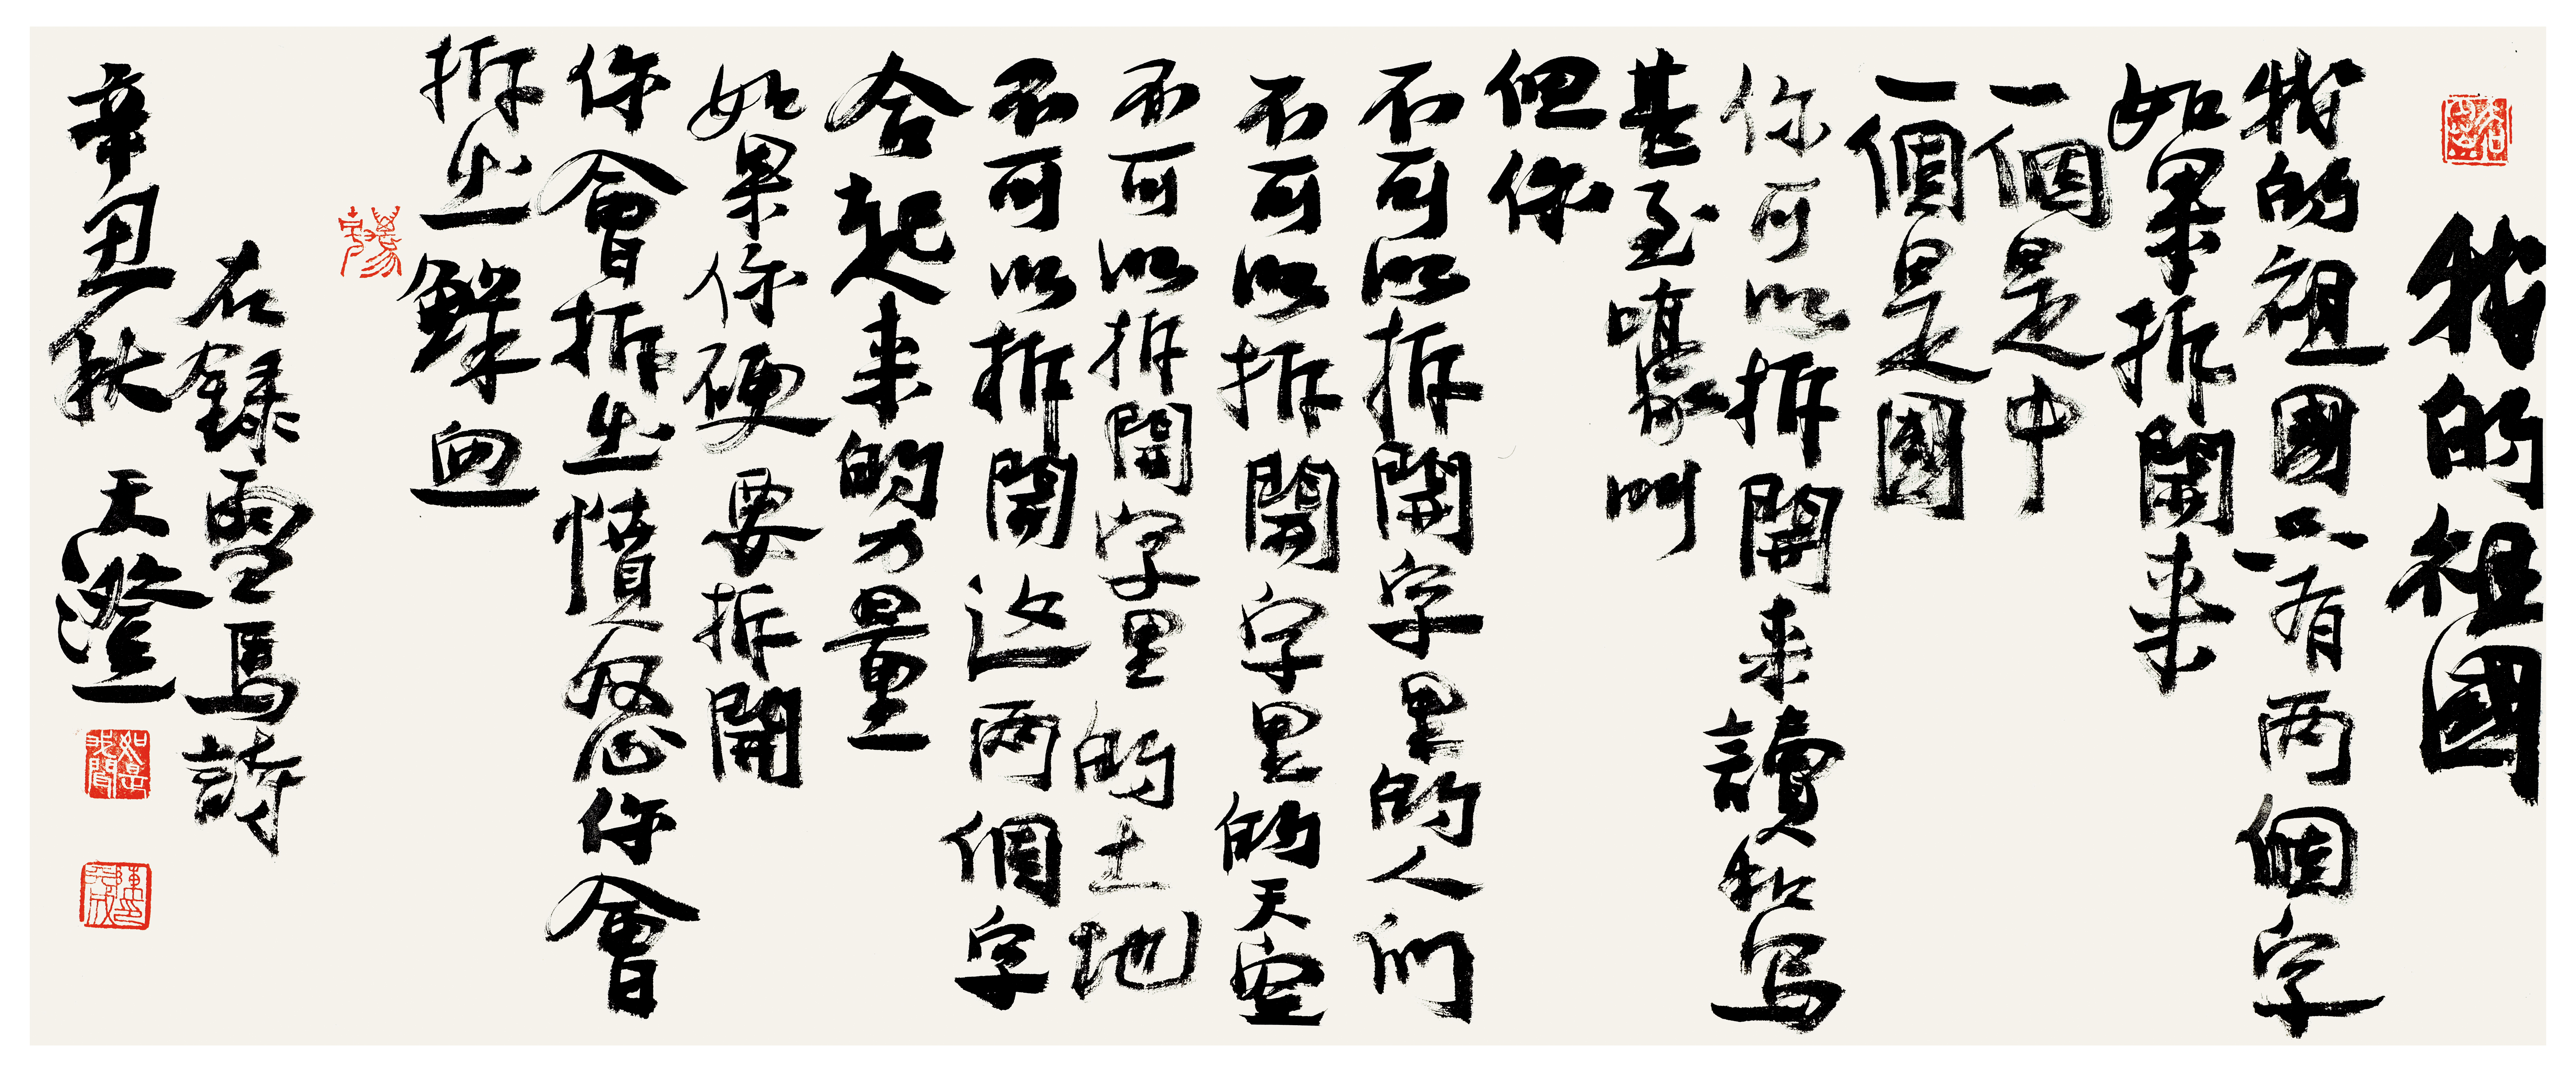 我的祖國
我的祖國只有两個字
如果拆開来
一個是中
一個是國
你可以拆開来讀和写
甚至嚎叫
但你
不可以拆開字里的人们
不可以拆開字里的天空
不可以拆開字里的土地
不可以拆開这两個字
合起来的力量
如果你硬要拆開
你會拆出憤怒你會
拆出鮮血
右録雪馬詩
辛丑秋 天澄
如是我聞